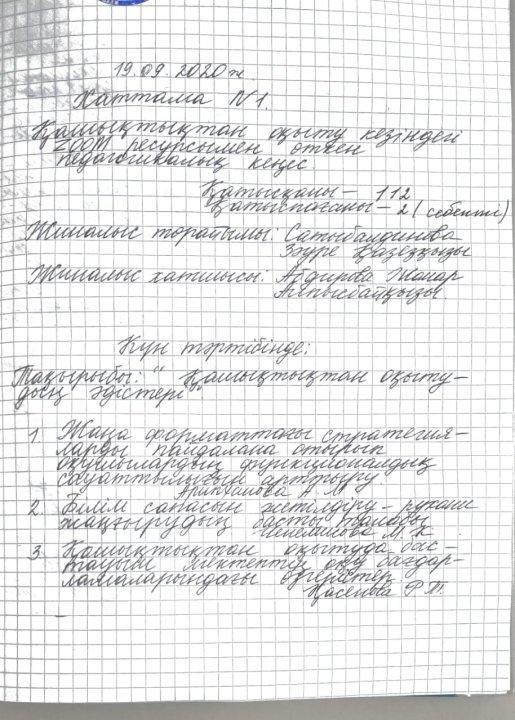 19.09.2020ж.
Хаттама N1.
Қашықтықтан оқыту кезіндегі
ZOOM ресурсымен өткен
педагогикалық кеңес
Қатысқаны - 112
Қатыспағаны - 2 (себепті)
Жиналыс төрайымы: Сатыбалдинова
Зәуре Қазезқызы
Жиналыс хатшысы: Абдирова Жанар
Алпысбайқызы
Күн тәртібінде:
Тақырыбы: " Қашықтықтан оқыту-
дың әдістері"
1. Жаңа форматтағы стратегия-
ларды пайдалана отырып
оқушылардың функционалдық
сауаттылығын арттыру
А. М
2. Білім сапасын жетілдіру - рухани
жаңғырудың басты талабы
М. К
3. Қашықтықтан оқытуда бас-
тауыш мектептің оқу бағдар-
ламаларындағы өзгерістер.
Қасенова Р.Т.